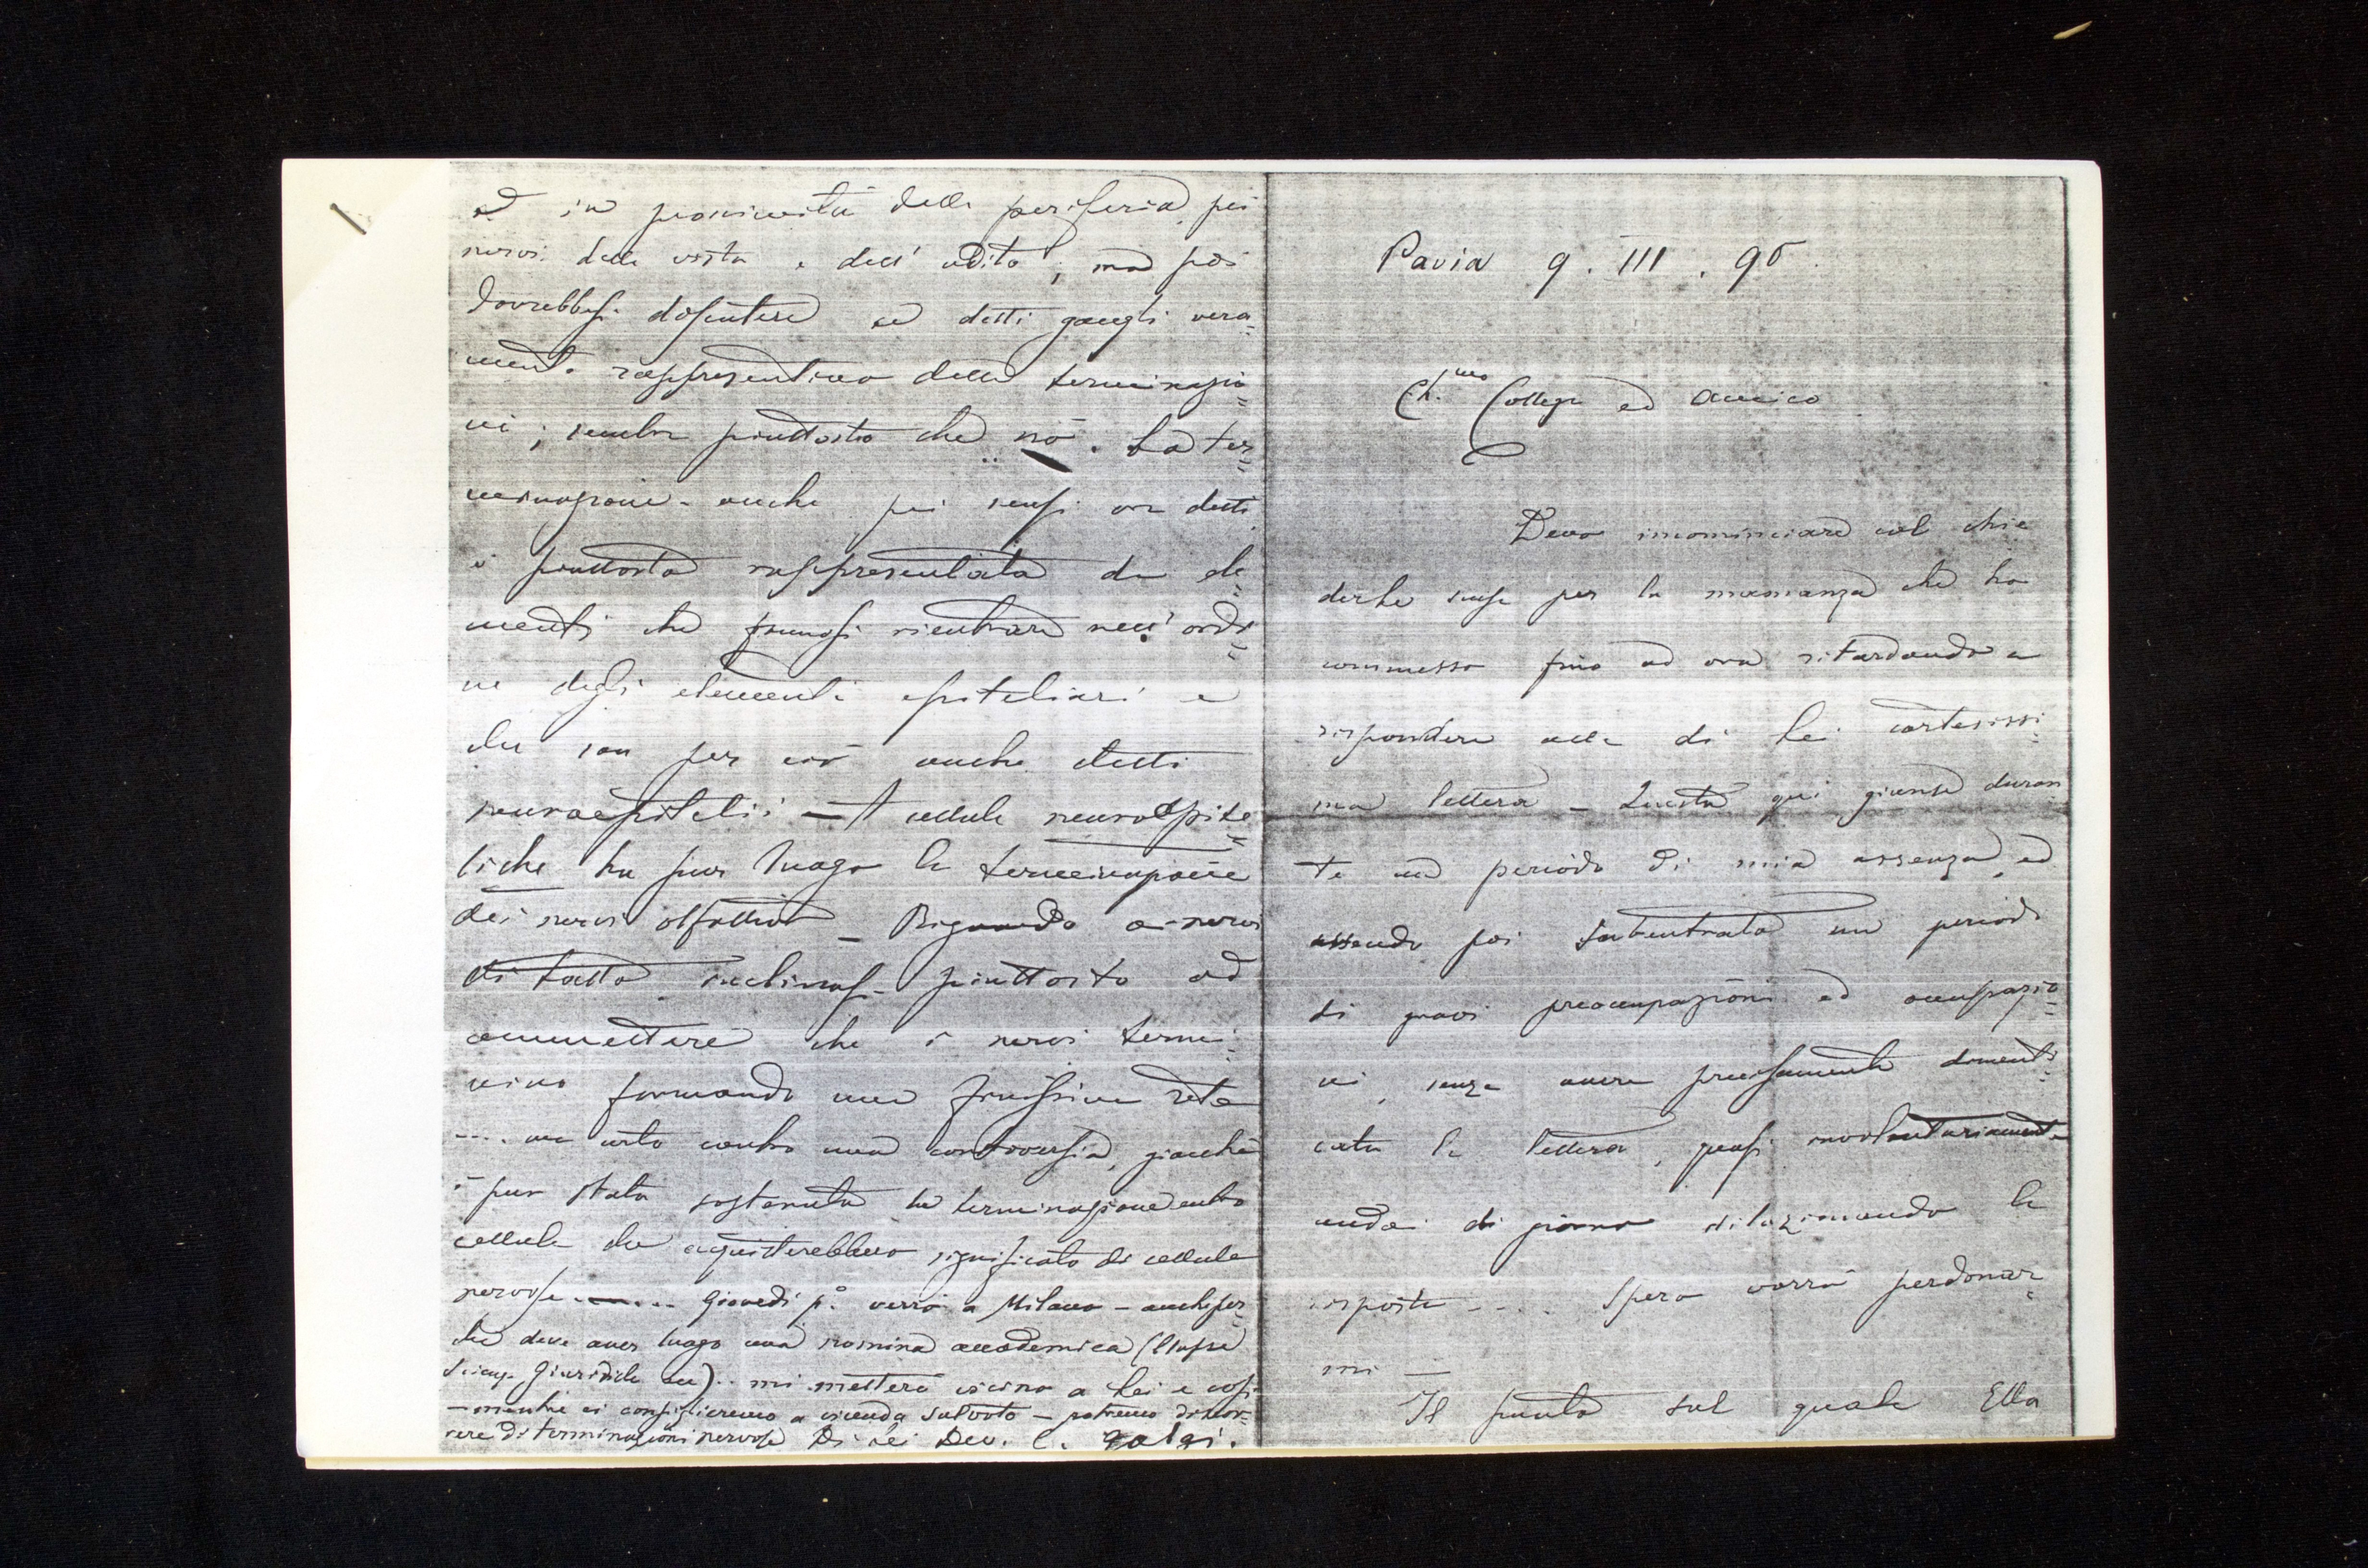 ed in prossimità della periferia pei
nervi della vista e dell' udito ; ma poi
dovrebbesi discutere se detti gangli vera=
mente rappresentino delle terminazio=
ni ; sembra piuttosto che no . La ter=
minazione - anche pei sensi ora detti
è piuttosto rappresentata da ele=
menti che ponnosi rientrare nell' ordi=
ne degli elementi epiteliari e
che son per ciò anche detti
neuroepitelii — A cellule neuroepite=
liche ha pur luogo la terminazione
dei nervi olfattivi — Riguardo a nervi
di tatto inclinasi piuttosto ad
ammettere che i nervi termi=
nino formando una finissima rete
.... ma urto contro una controversia, giacchè
è pur stata sostenuta la terminazione entro
cellule che acquisterebbero significato di cellule
nervose ...... Giovedì p.º verrò a Milano – anche per=
chè deve aver luogo una nomina accademica (Classe
Scienze Giuridiche ecc) .. mi metterò vicino a Lei e così
– mentre ci consiglieremo a vicenda sul voto – potremo discor=
rere di terminazioni nervose Di Lei Dev. C. Golgi .
Pavia 9 . III . 95
Ch.mo Collega ed Amico
Devo incominciare col chie
derle scusa per la mancanza che ho
commesso fino ad ora ritardando a
rispondere alla di Lei cortesissi=
ma lettera – Questa qui giunse duran
te un periodo di mia assenza, ed
essendo poi subentrato un periodo
di gravi preoccupazioni ed occupazio=
ni, senza avere precisamente dimenti=
cata la lettera, quasi involontariamente
andai di giorno dilazionando la
risposta .... Spero vorrà perdonar=
mi —
Il punto sul quale Ella